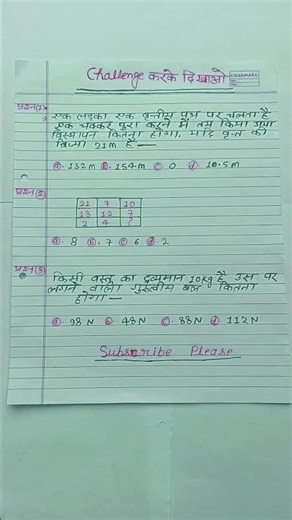 Challenge करके दिखाओ
CLASSMATE
प्रश्न(1)→
एक लड़का एक वृत्तीय पथ पर चलता है
एक चक्कर पूरा करने में तय किया गया
विस्थापन कितना होगा, यदि वृत्त की
त्रिज्या 21m है —
ⓐ. 132m ⓑ. 154m ⓒ. 0 ⓓ. 10.5m
प्रश्न(2)
21 7 10
13 12 7
2 4 ?
ⓐ. 8 ⓑ. 7 ⓒ 6 ⓓ. 2
प्रश्न(3)
किसी वस्तु का द्रव्यमान 10kg है उस पर
लगने वाला गुरुत्वीय बल कितना
होगा —
ⓐ. 98N ⓑ. 48N ⓒ. 88N ⓓ 112N
Subscribe Please